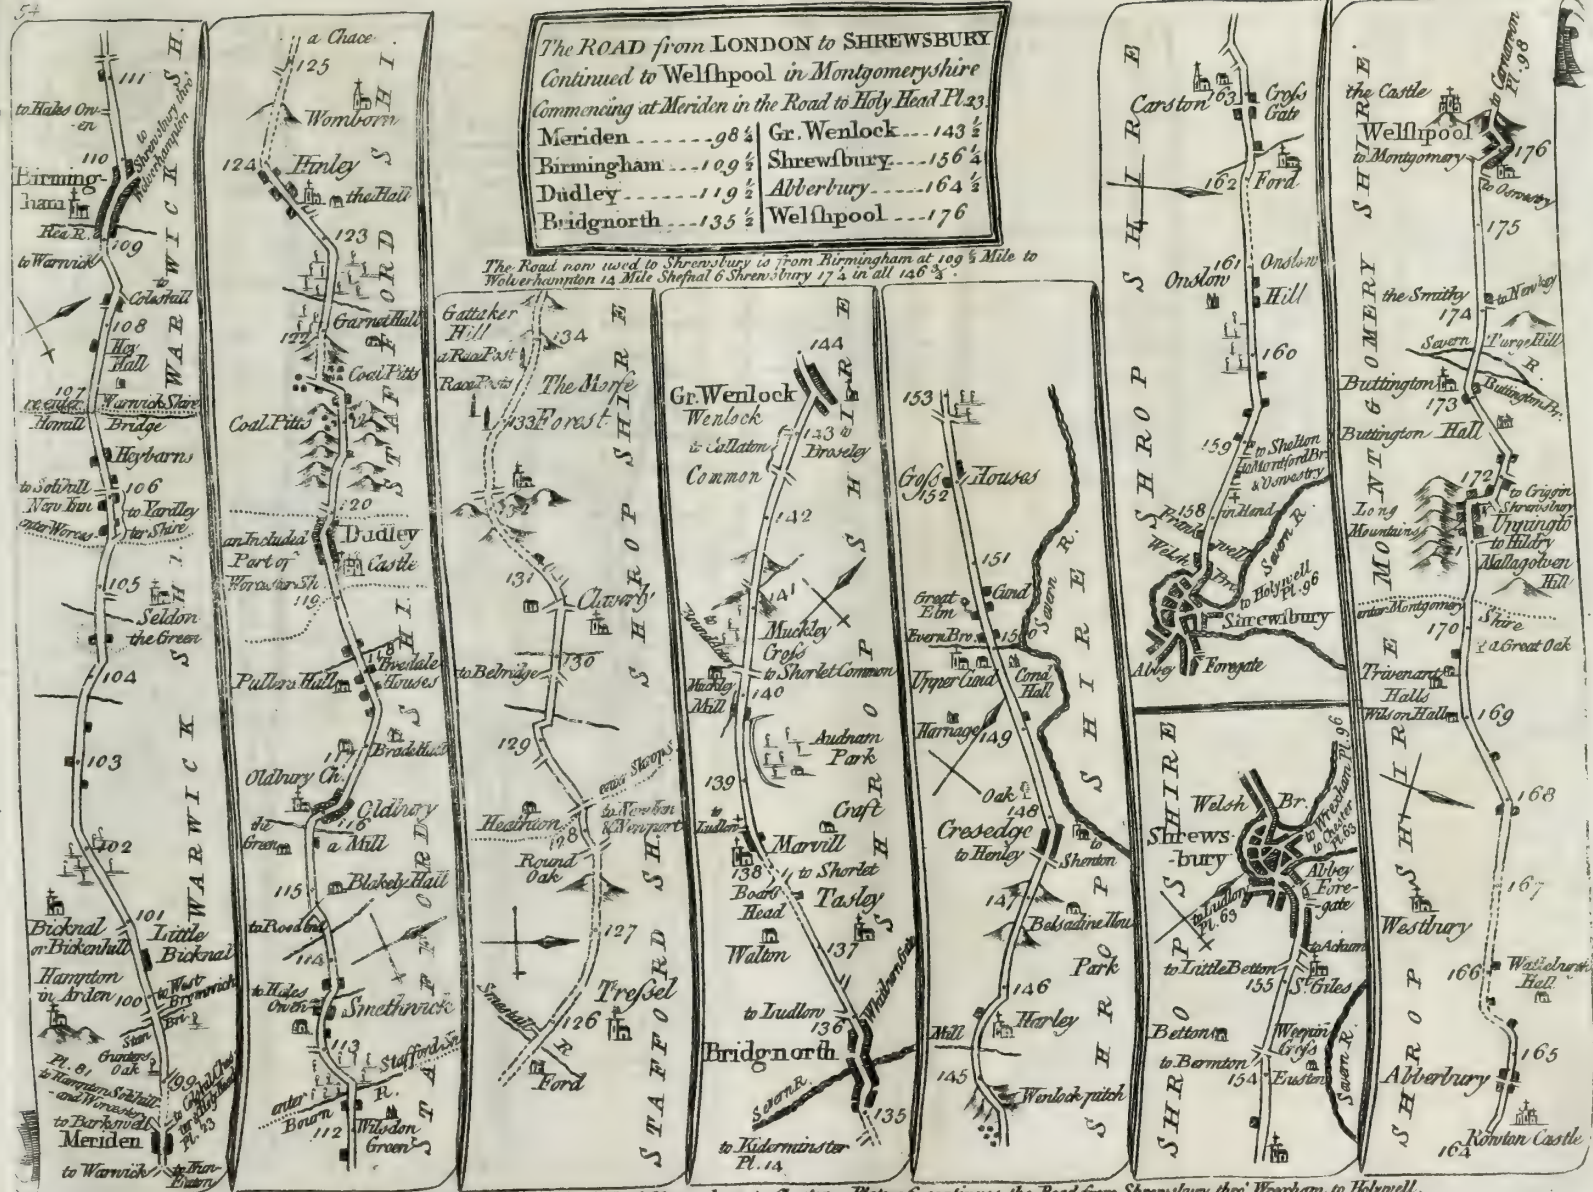 54
The ROAD from LONDON to SHREWSBURY
Continued to Welſhpool in Montgomeryshire
Commencing at Meriden in the Road to Holy Head Pl.23.
Meriden - - - - - - - 98 1/4
Birmingham - - - - 109 1/2
Dudley - - - - - - - 119 1/2
Bridgnorth - - - 135 1/2
Gr. Wenlock - - - 143 1/2
Shrewſbury - - - - 156 1/4
Abberbury - - - - - 164 1/2
Welſhpool - - - - 176
The Road now used to Shrewsbury is from Birmingham at 109 1/2 Mile to
Wolverhampton 14 Mile Shefnal 6 Shrewsbury 17 1/4 in all 146 3/4.
WARWICK SH.
111
to Hales Ow-
-en
to
Shrewsbury thro'
Wolverhampton
110
Birming-
ham
Rea R.
109
to Warwick
to
Coleshill
108
Hay
Hall
107
re enter Warwick Shire
Bridge
Heybarns
to Solihill
106
New Inn
to Yardley
enter Worces
ter Shire
105
Seldon
the Green
WARWICK SHI.
104
103
102
101
Bicknal
or Bickenhill
Little
Bicknal
Hampton
in Arden
100
to West
Bromwich
Bri
Oak
Pl. 81
99
to Hampton Solihill
and Worcester
Pl. 23
to Barkswell
Meriden
to Warwick
to Nun-
Eaton
STAFFORD SHI.
a Chace
125
Womborn
124
Hinley
the Hall
123
122
Garnet Hall
Coal Pitts
Coal Pitts
121
120
an Included
Part of
Worcester Sh
Dudley
Castle
119
118
Tivedale
Houses
Pullers Hall
117
Oldbury Ch.
Oldbury
116
the
Green
a Mill
115
Blakely Hall
114
to Hales
Owen
Smethwick
113
Stafford Sh
enter
Bourn R.
112
Wilsdon
Green
STAFFORD SHI.
SHROP SHIRE
Gattaker
Hill
134
a Race Post
Race Posts
The Morfe
133 Forest
132
131
Claverly
130
to Belbridge
129
enter Shrops
Heathton
128
to Newton
& Newport
Round
Oak
127
Tressel
Smestall R
126
Ford
STAFFORD SH.
SHROP SHIRE
144
Gr. Wenlock
Wenlock
143
to
Broseley
to Callaton
Common
142
141
Muckley
Cross
to Shorlet Common
Muckley
Mill
140
Audnam
Park
139
to
Ludlow
Craft
Marvill
138
to Shorlet
Boars
Head
Tasley
Walton
137
to Ludlow
136
Bridgnorth
Severn R.
135
to Kiderminster
Pl. 14
SHROP SHIRE
153
Cross Houses
152
151
Great
Elm
Cund
Evern Bro.
150
Severn R.
Upper Cund
Cond
Hall
Harnage
149
Oak
148
Cresedge
to Henley
to
Shenton
147
Belsadine Hou
Park
146
Mill
Harley
145
Wenlock pitch
SHROP SHIRE
Carston
163
Cross
Gate
162
Ford
161
Onslow
Onslow
Hill
160
159
to Shelton
to Montford Br.
& Oswestry
158
Frank well
Welsh Bri.
Severn R.
to Holywell
Pl. 96
Shrewsbury
Abbey
Foregate
SHROP SHIRE
Welsh Br.
to Wrexham Pl. 96
to Chester
Pl. 63
Shrews-
-bury
Abbey
Fore-
-gate
to Ludlow
Pl. 63
to Acham
to Little Betton
155
St. Giles
Betton
Weeping
Cross
to Bermton
154
Euston
Severn R.
MONTGOMERY SHIRE.
to Carnarvon
Pl. 98
the Castle
Welſhpool
to Montgomery
176
to Oswestry
175
the Smithy
174
Severn R.
Buttington
173
Buttington Br.
Buttington Hall
172
Long
Mountains
to Criggin
Shrewsbury
to Hildry
Mallagolven
Hill
enter Montgomery
Shire
170
a Great Oak
Trivenant
Halls
Wilson Hall
169
168
167
Westbury
166
Hall
165
Abberbury
Rowton Castle
164
SHROP SHIRE
the Road from Shrewsbury thro' Wrexham to Holywell.